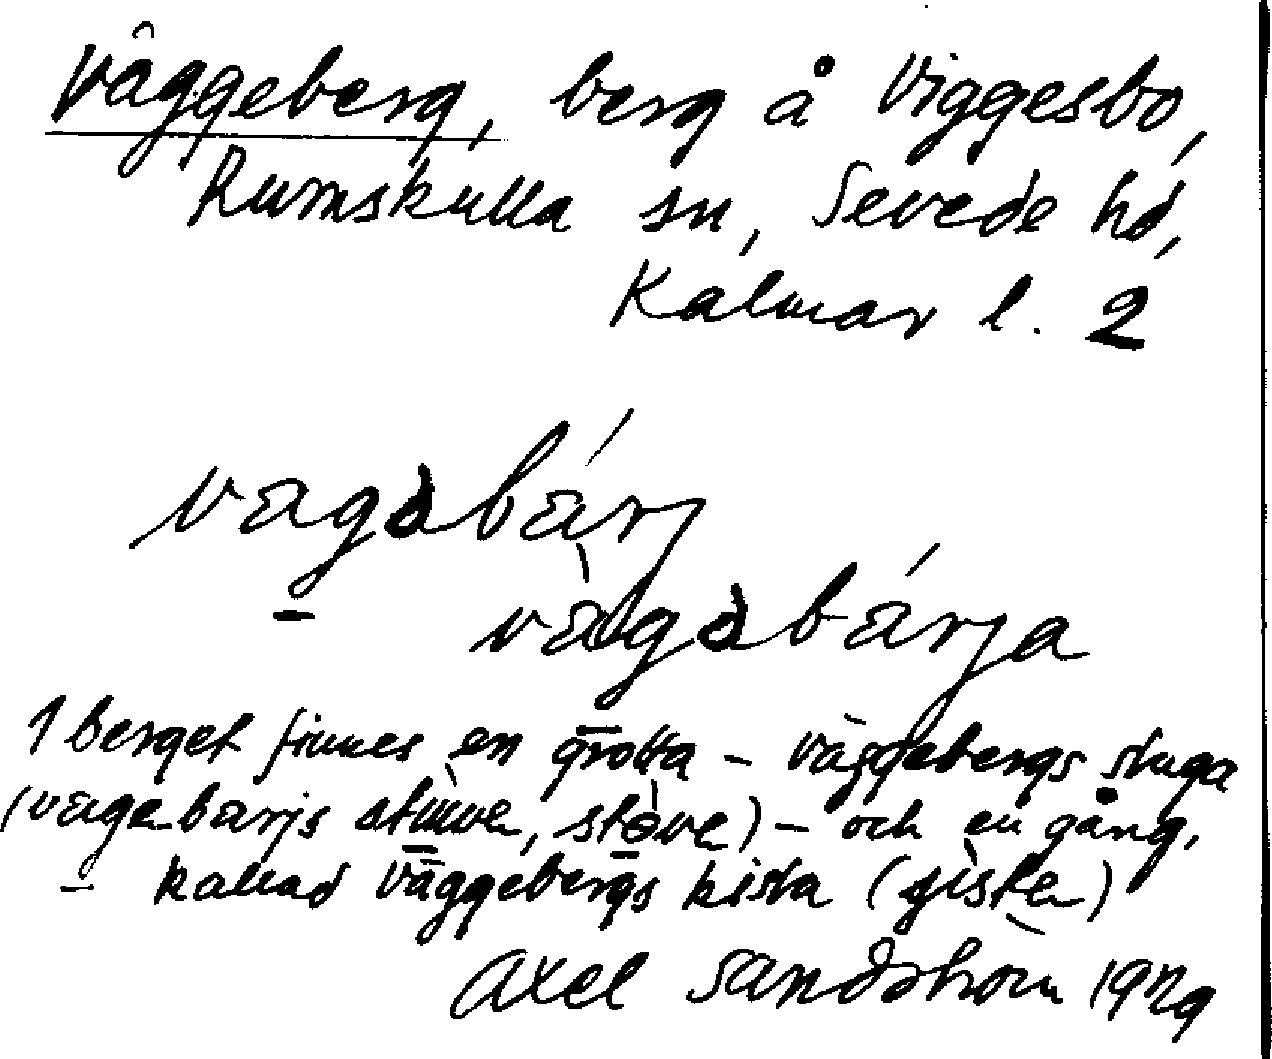 Väggeberg, berg å Viggesbo,
Rumskulla sn, Sevede hd,
Kalmar l. 2
vagəbärj
vägəbärja
I berget finnes en grotta – Väggebergs stuga
(vagebarjs stuwe, støve) – och en gång,
– kallad Väggebergs kista (
Axel Sandahl 1929